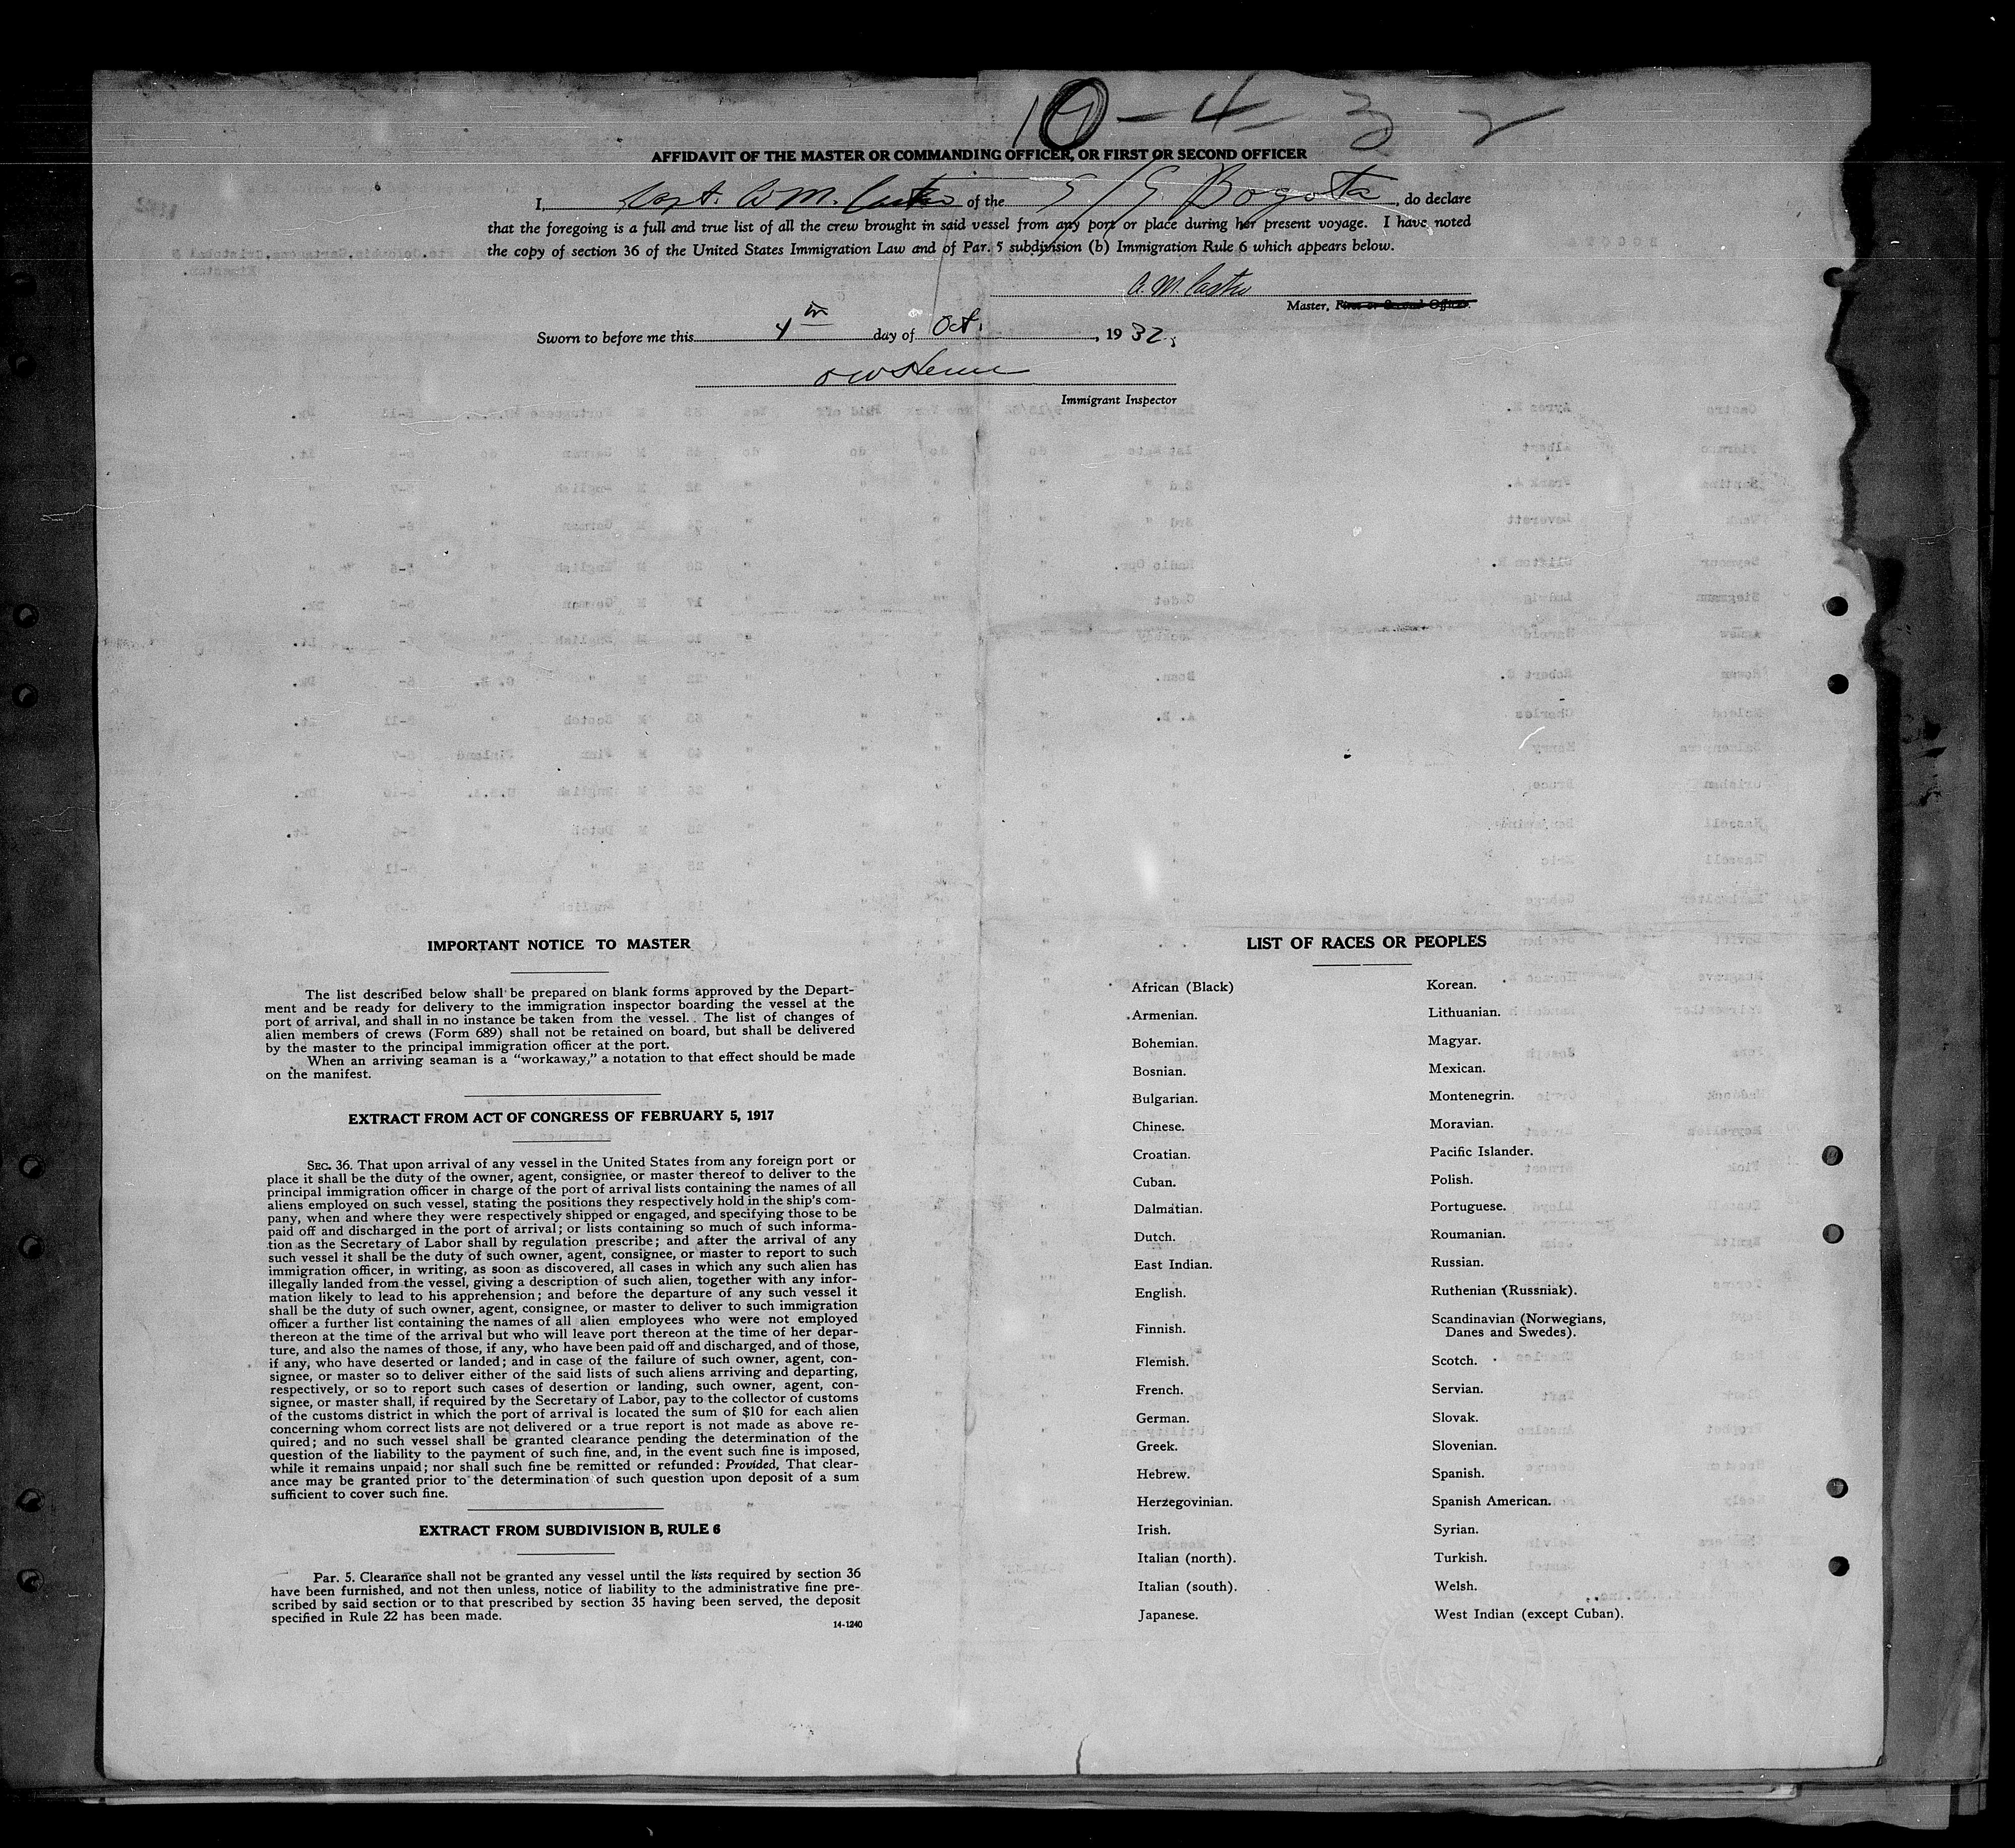 10-4-32
AFFIDAVIT OF THE MASTER OR COMMANDING OFFICER, OR FIRST OR SECOND OFFICER
I, Capt. A. M. Castro of the S/S Bogota, do declare
that the foregoing is a full and true list of all the crew brought in said vessel from any port or place during her present voyage. I have noted
the copy of section 36 of the United States Immigration Law and of Par. 5 subdivision (b) Immigration Rule 6 which appears below.
A. M. Castro
Master, First or Second Officer.
Sworn to before me this 4th day of Oct., 1932.
Immigrant Inspector
IMPORTANT NOTICE TO MASTER
The list described below shall be prepared on blank forms approved by the Depart-
ment and be ready for delivery to the immigration inspector boarding the vessel at the
port of arrival, and shall in no instance be taken from the vessel. The list of changes of
alien members of crews (Form 689) shall not be retained on board, but shall be delivered
by the master to the principal immigration officer at the port.
When an arriving seaman is a "workaway," a notation to that effect should be made
on the manifest.
EXTRACT FROM ACT OF CONGRESS OF FEBRUARY 5, 1917
SEC. 36. That upon arrival of any vessel in the United States from any foreign port or
place it shall be the duty of the owner, agent, consignee, or master thereof to deliver to the
principal immigration officer in charge of the port of arrival lists containing the names of all
aliens employed on such vessel, stating the positions they respectively hold in the ship's com-
pany, when and where they were respectively shipped or engaged, and specifying those to be
paid off and discharged in the port of arrival; or lists containing so much of such informa-
tion as the Secretary of Labor shall by regulation prescribe; and after the arrival of any
such vessel it shall be the duty of such owner, agent, consignee, or master to report to such
immigration officer, in writing, as soon as discovered, all cases in which any such alien has
illegally landed from the vessel, giving a description of such alien, together with any infor-
mation likely to lead to his apprehension; and before the departure of any such vessel it
shall be the duty of such owner, agent, consignee, or master to deliver to such immigration
officer a further list containing the names of all alien employees who were not employed
thereon at the time of the arrival but who will leave port thereon at the time of her depar-
ture, and also the names of those, if any, who have been paid off and discharged, and of those,
if any, who have deserted or landed; and in case of the failure of such owner, agent, con-
signee, or master so to deliver either of the said lists of such aliens arriving and departing,
respectively, or so to report such cases of desertion or landing, such owner, agent, con-
signee, or master shall, if required by the Secretary of Labor, pay to the collector of customs
of the customs district in which the port of arrival is located the sum of $10 for each alien
concerning whom correct lists are not delivered or a true report is not made as above re-
quired; and no such vessel shall be granted clearance pending the determination of the
question of the liability to the payment of such fine, and, in the event such fine is imposed,
while it remains unpaid; nor shall such fine be remitted or refunded: Provided, That clear-
ance may be granted prior to the determination of such question upon deposit of a sum
sufficient to cover such fine.
EXTRACT FROM SUBDIVISION B, RULE 6
Par. 5. Clearance shall not be granted any vessel until the lists required by section 36
have been furnished, and not then unless, notice of liability to the administrative fine pre-
scribed by said section or to that prescribed by section 35 having been served, the deposit
specified in Rule 22 has been made.
14-1240
LIST OF RACES OR PEOPLES
African (Black)
Armenian.
Bohemian.
Bosnian.
Bulgarian.
Chinese.
Croatian.
Cuban.
Dalmatian.
Dutch.
East Indian.
English.
Finnish.
Flemish.
French.
German.
Greek.
Hebrew.
Herzegovinian.
Irish.
Italian (north).
Italian (south).
Japanese.
Korean.
Lithuanian.
Magyar.
Mexican.
Montenegrin.
Moravian.
Pacific Islander.
Polish.
Portuguese.
Roumanian.
Russian.
Ruthenian (Russniak).
Scandinavian (Norwegians,
Danes and Swedes).
Scotch.
Servian.
Slovak.
Slovenian.
Spanish.
Spanish American.
Syrian.
Turkish.
Welsh.
West Indian (except Cuban).